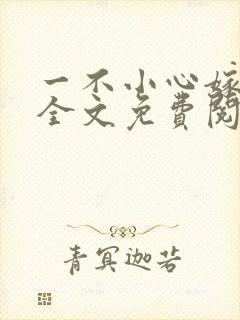 一不小心嫁
全文免费阅
青冥迦若